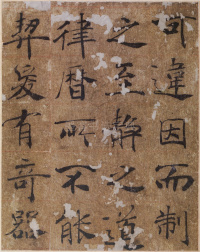 可違因而制
之至靜之道
律暦所不能
契爰有奇器